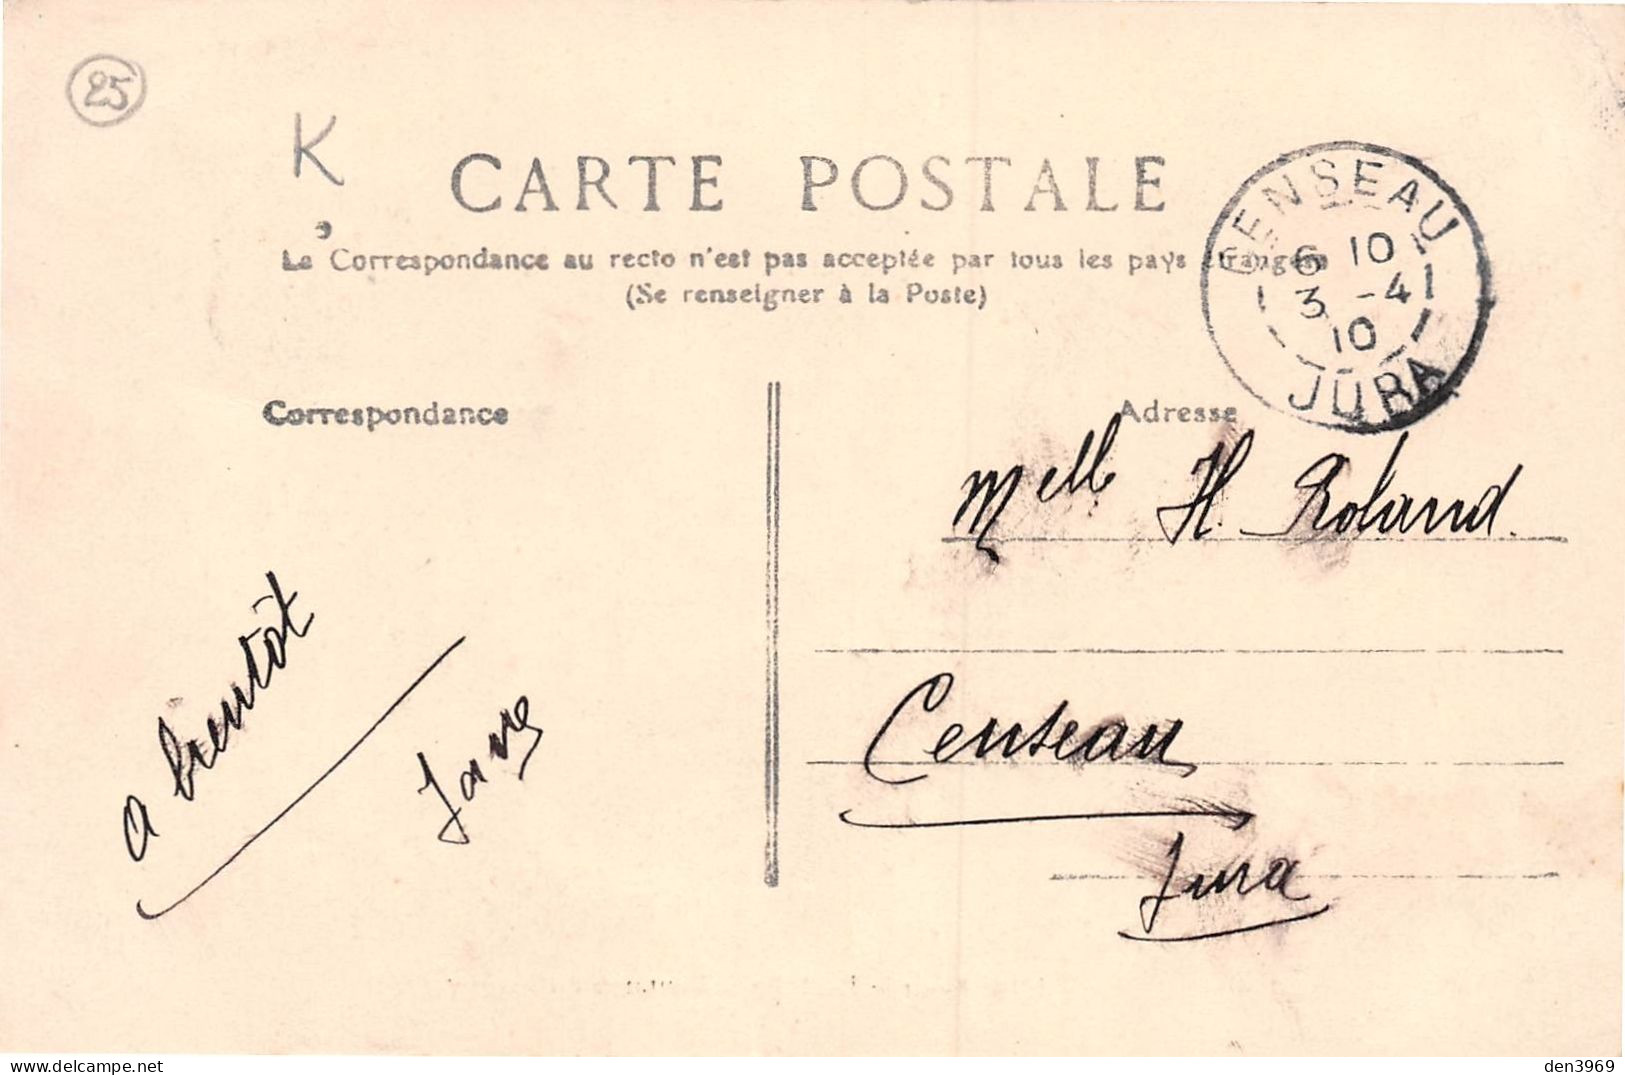 25
K
CARTE POSTALE
La Correspondance au recto n'est pas acceptée par tous les pays étrangers
(Se renseigner à la Poste)
CENSEAU
6 10
3 -4
10
JURA
Correspondance
Adresse
Melle H. Roland.
a bientôt
Censeau
Jura
den3969